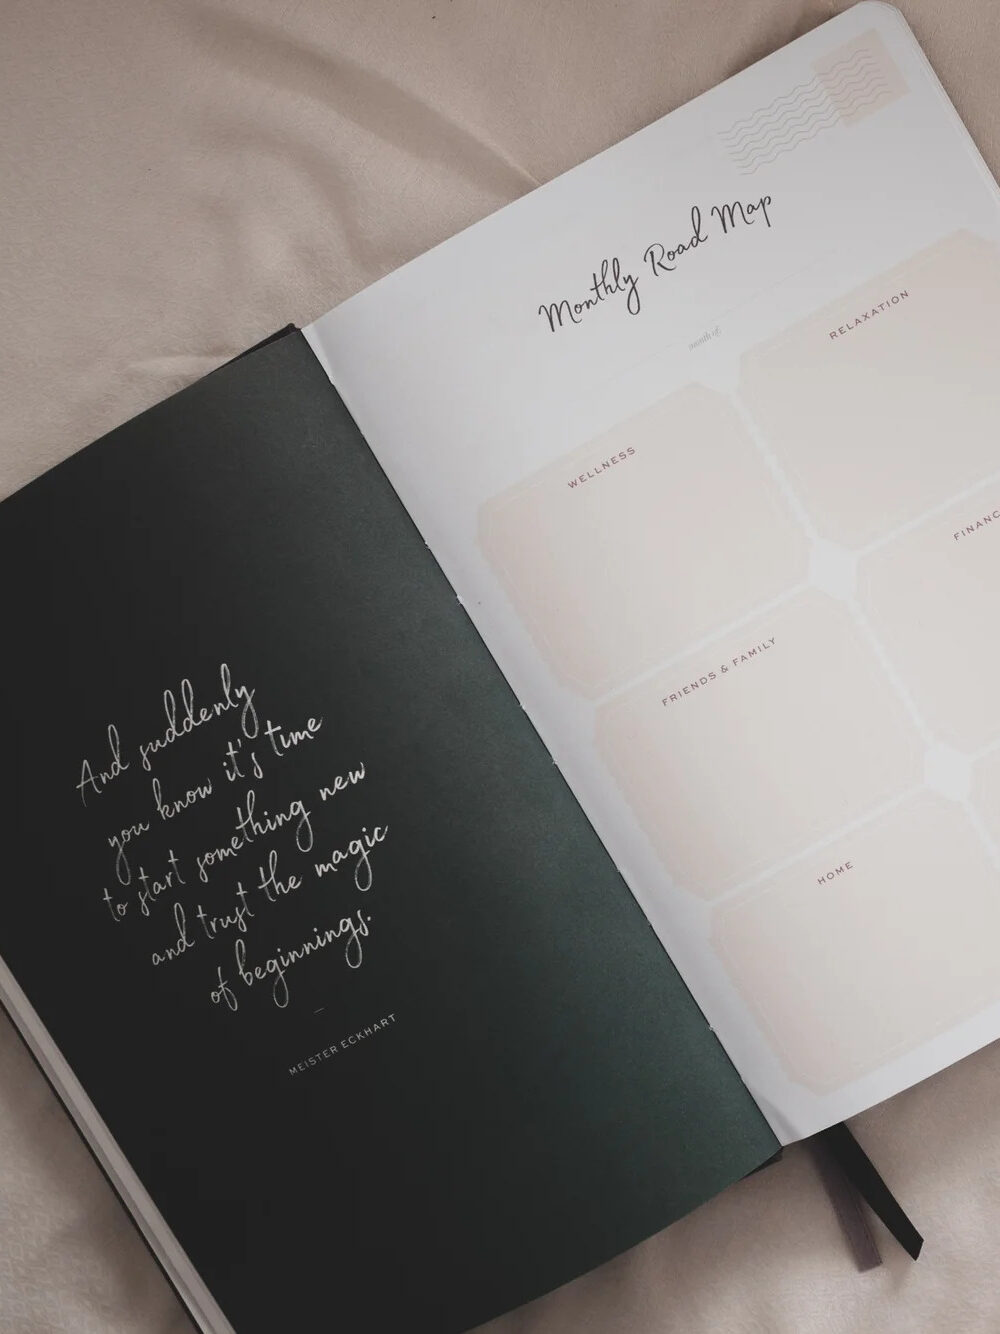 And suddenly
you know it's time
to start something new
and trust the magic
of beginnings.
MEISTER ECKHART
Monthly Road Map
month of:
WELLNESS
RELAXATION
FRIENDS & FAMILY
FINANC
HOME